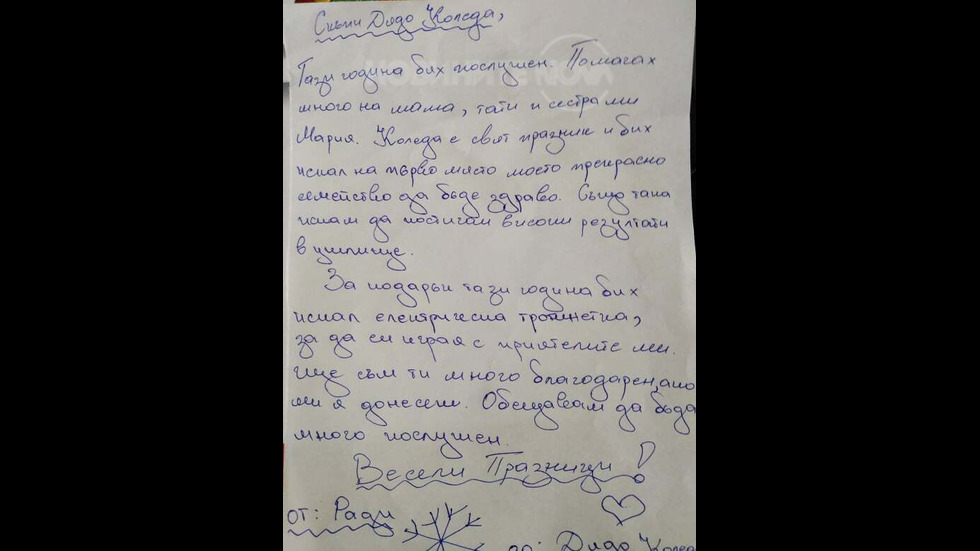 Скъпи Дядо Коледа,
Тази година бях послушен. Помагах
много на мама, тати и сестра ми
Мария. Коледа е свят празник и бих
искал на първо място моето прекрасно
семейство да бъде здраво. Също така
искам да постигам високи резултати
в училище.
За подарък тази година бих
искал електрическа тротинетка,
за да си играя с приятелите ми.
Ще съм ти много благодарен, ако
ми я донесеш. Обещавам да бъда
много послушен.
Весели Празници!
от: Ради
до: Дядо Коледа